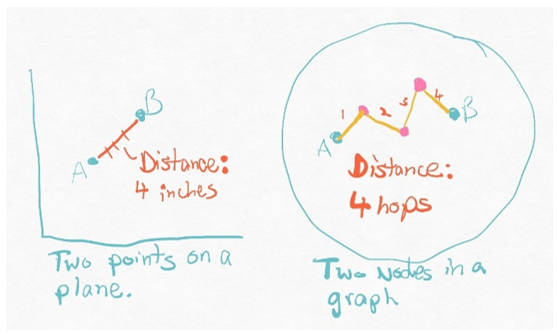 B
A
Distance:
4 inches
Two points on a
plane.
1 2 3 4
A
B
Distance:
4 hops
Two Nodes in a
graph